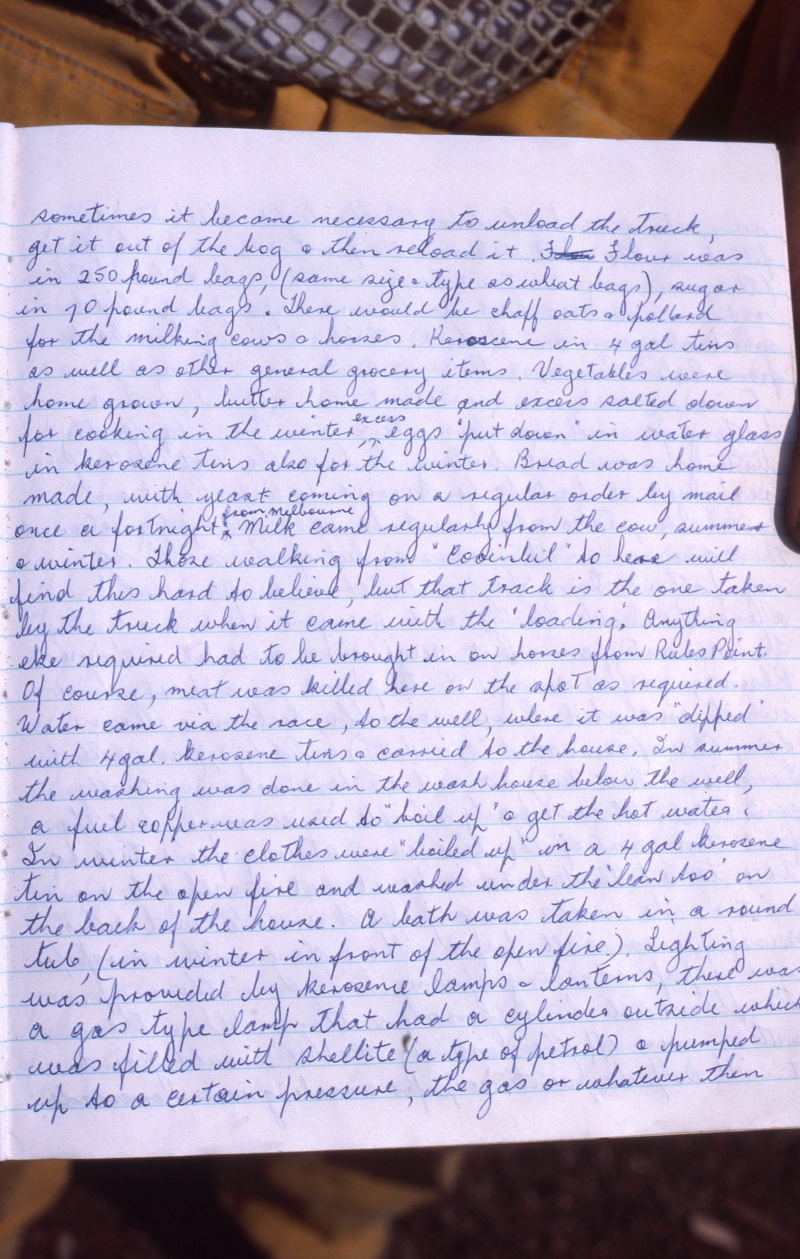 sometimes it became necessary to unload the truck,
get it out of the bog & then reload it Flour was
in 250 pound bags, (same size & type as wheat bags), sugar
in 70 pound bags. There would be chaff oats & pollard
for the milking cows & horses. Kerosene in 4 gal tins
as well as other general grocery items. Vegetables were
home grown, butter home made and excess salted down
for cooking in the winter, excess eggs "put down" in water glass
in kerosene tins also for the winter. Bread was home
made, with yeast coming on a regular order by mail
once a fortnight from Melbourne. Milk came regularly from the cow, summer
& winter. Those walking from "Cooinbil" to here will
find this hard to believe, but that track is the one taken
by the truck when it came with the 'loading'. Anything
else required had to be brought in on horses from Rules Point.
Of course, meat was killed here on the spot as required.
Water came via the race, to the well, where it was "dipped"
with 4 gal. kerosene tins & carried to the house. In summer
the washing was done in the wash house below the well,
a fuel copper was used to "boil up" & get the hot water.
In winter the clothes were "boiled up" in a 4 gal kerosene
tin on the open fire and washed under the 'lean too' on
the back of the house. A bath was taken in a round
tub, (in winter in front of the open fire). Lighting
was provided by kerosene lamps & lanterns, there was
a gas type lamp that had a cylinder outside which
was filled with shellite (a type of petrol) & pumped
up to a certain pressure, the gas or whatever then